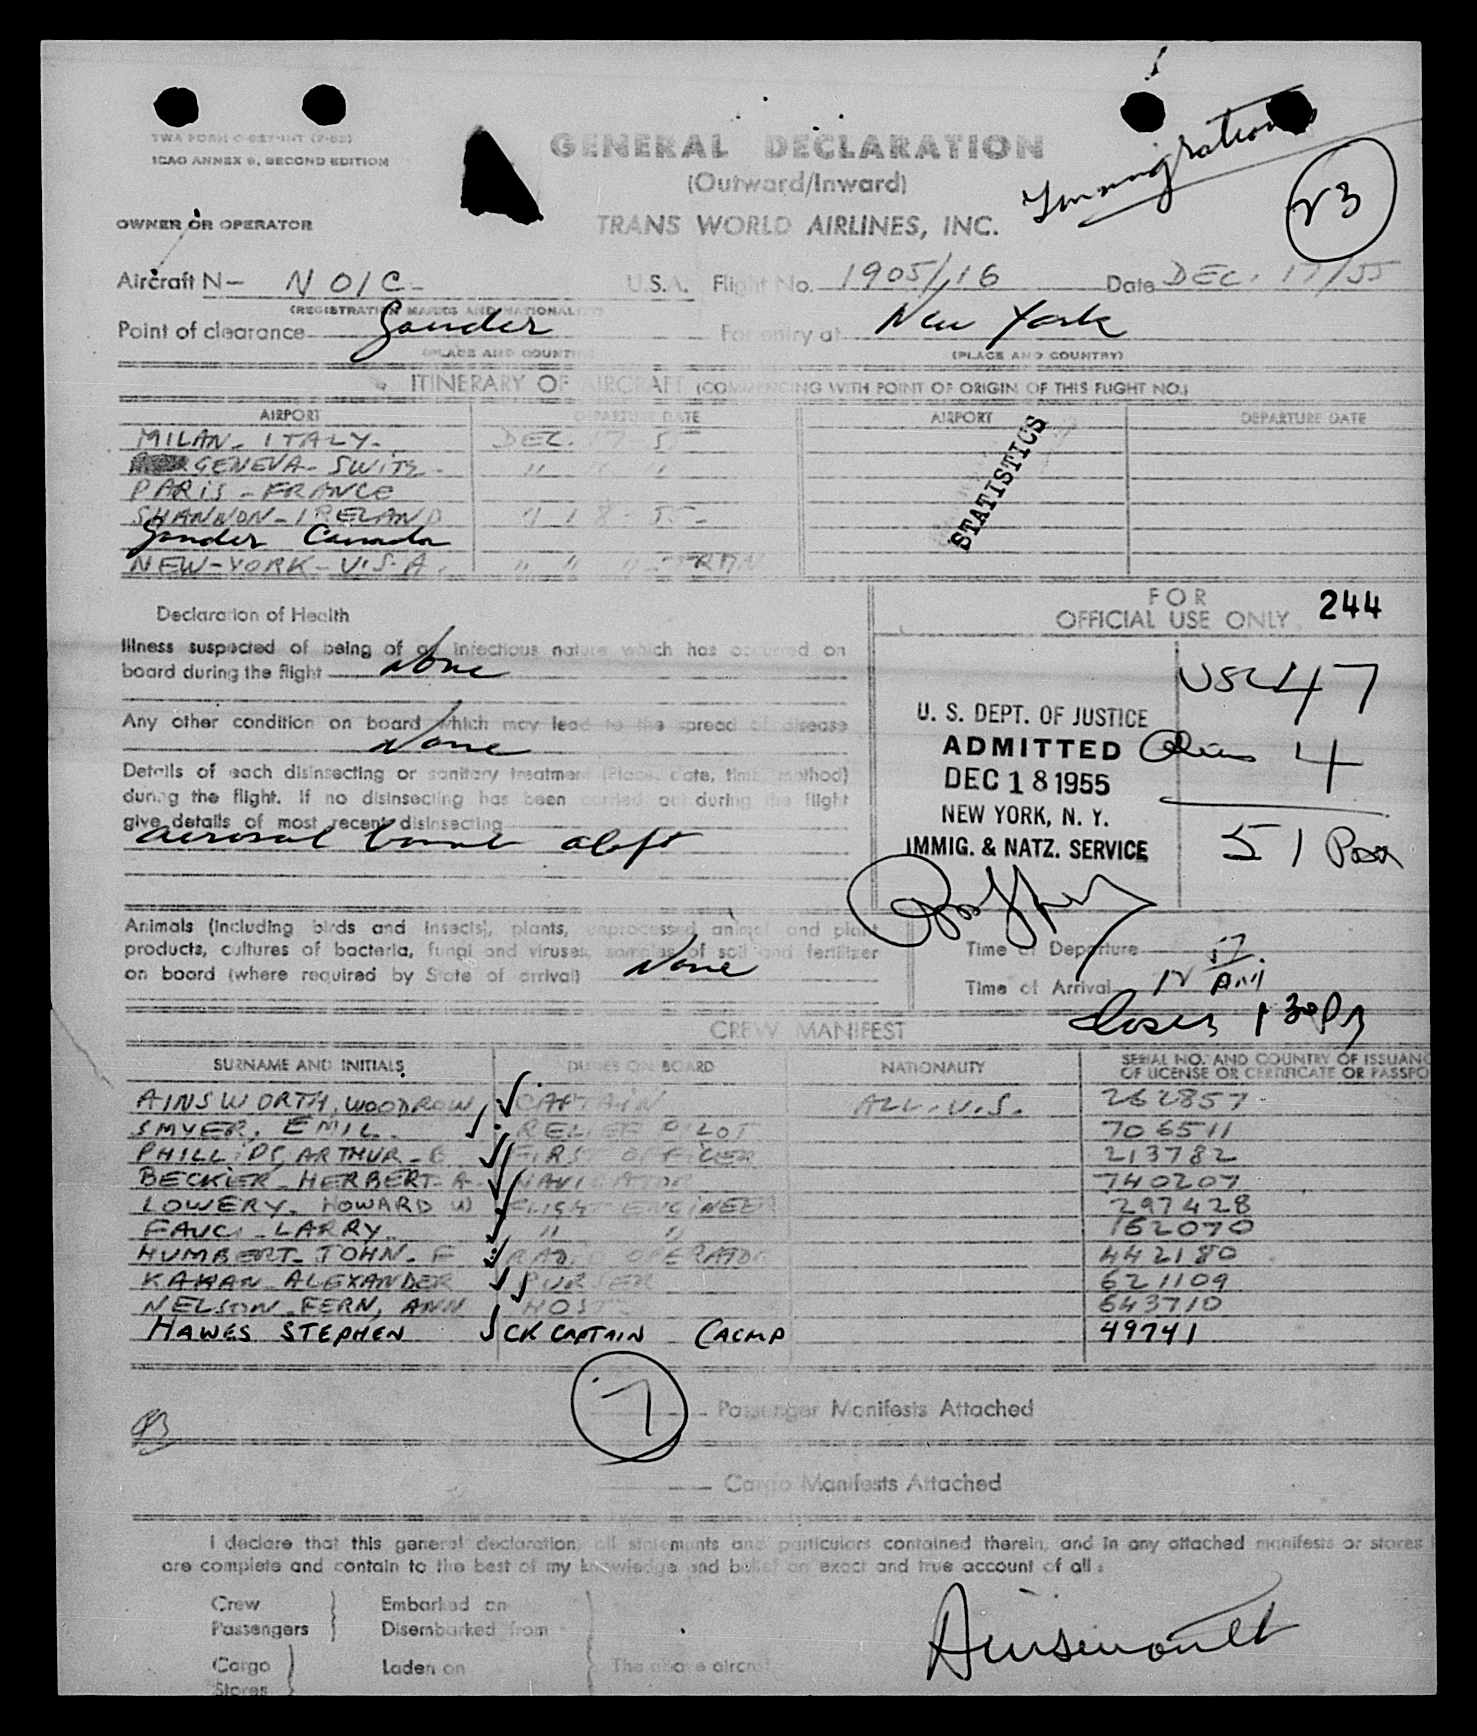 TWA FORM
ICAO ANNEX 9, SECOND EDITION
GENERAL DECLARATION
(Outward/Inward)
Immigration
23
OWNER OR OPERATOR
TRANS WORLD AIRLINES, INC.
Aircraft N- N 01C- U.S.A. Flight No. 1905/,16 Date DEC. 17/55
(REGISTRATION MARKS AND NATIONALITY)
Point of clearance Gander For entry at New York
(PLACE AND COUNTRY) (PLACE AND COUNTRY)
ITINERARY OF AIRCRAFT (COMMENCING WITH POINT OF ORIGIN OF THIS FLIGHT NO.)
AIRPORT DEPARTURE DATE AIRPORT DEPARTURE DATE
MILAN- ITALY- DEC. 17 5
GENEVA- SWITZ- " " "
PARIS - FRANCE
SHANNON- IRELAND " 18 - 55-
Gander Canada
NEW-YORK- U.S.A. " " "
STATISTICS
Declaration of Health
FOR
OFFICIAL USE ONLY 244
Illness suspected of being of an infectious nature which has occurred on
board during the flight None
Any other condition on board which may lead to the spread of disease
None
Details of each disinsecting or sanitary treatment (Place, date, time, method)
during the flight. If no disinsecting has been carried out during the flight
give details of most recent disinsecting
aerosol bomb aloft
USC 47
U. S. DEPT. OF JUSTICE
ADMITTED
DEC 18 1955
NEW YORK, N. Y.
IMMIG. & NATZ. SERVICE
Aliens 4
51 Pass
Animals (including birds and insects), plants, unprocessed animal and plant
products, cultures of bacteria, fungi and viruses, samples of soil and fertilizer
on board (where required by State of arrival) None
Time of Departure
Time of Arrival 12 17 PM
Closes 1 30 PM
CREW MANIFEST
SURNAME AND INITIALS DUTIES ON BOARD NATIONALITY SERIAL NO. AND COUNTRY OF ISSUANC
OF LICENSE OR CERTIFICATE OR PASSPO
AINSWORTH, WOODROW, CAPTAIN ALL.U.S. 262857
SMYER, EMIL. RELIEF PILOT 706511
PHILLIPS, ARTHUR-E FIRST OFFICER 213782
BECKIER-HERBERT-A- NAVIGATOR 740207
LOWERY- HOWARD W FLIGHT ENGINEER 297428
FAUCI - LARRY " " 162070
HUMBERT- JOHN- F RADIO OPERATOR 442180
KAHAN ALEXANDER PURSER 621109
NELSON-FERN, ANN HOST- 643710
HAWES STEPHEN CK CAPTAIN (ACMP 49741
7 Passenger Manifests Attached
Cargo Manifests Attached
I declare that this general declaration, all statements and particulars contained therein, and in any attached manifests or stores
are complete and contain to the best of my knowledge and belief an exact and true account of all:
Crew Embarked on
Passengers Disembarked from
Cargo Laden on The above aircraft
Stores
Ainsworth